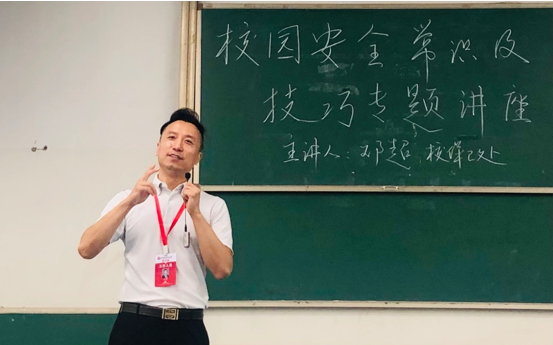 校园安全常识及
技巧专题讲座
主讲人：邓超 校保卫处